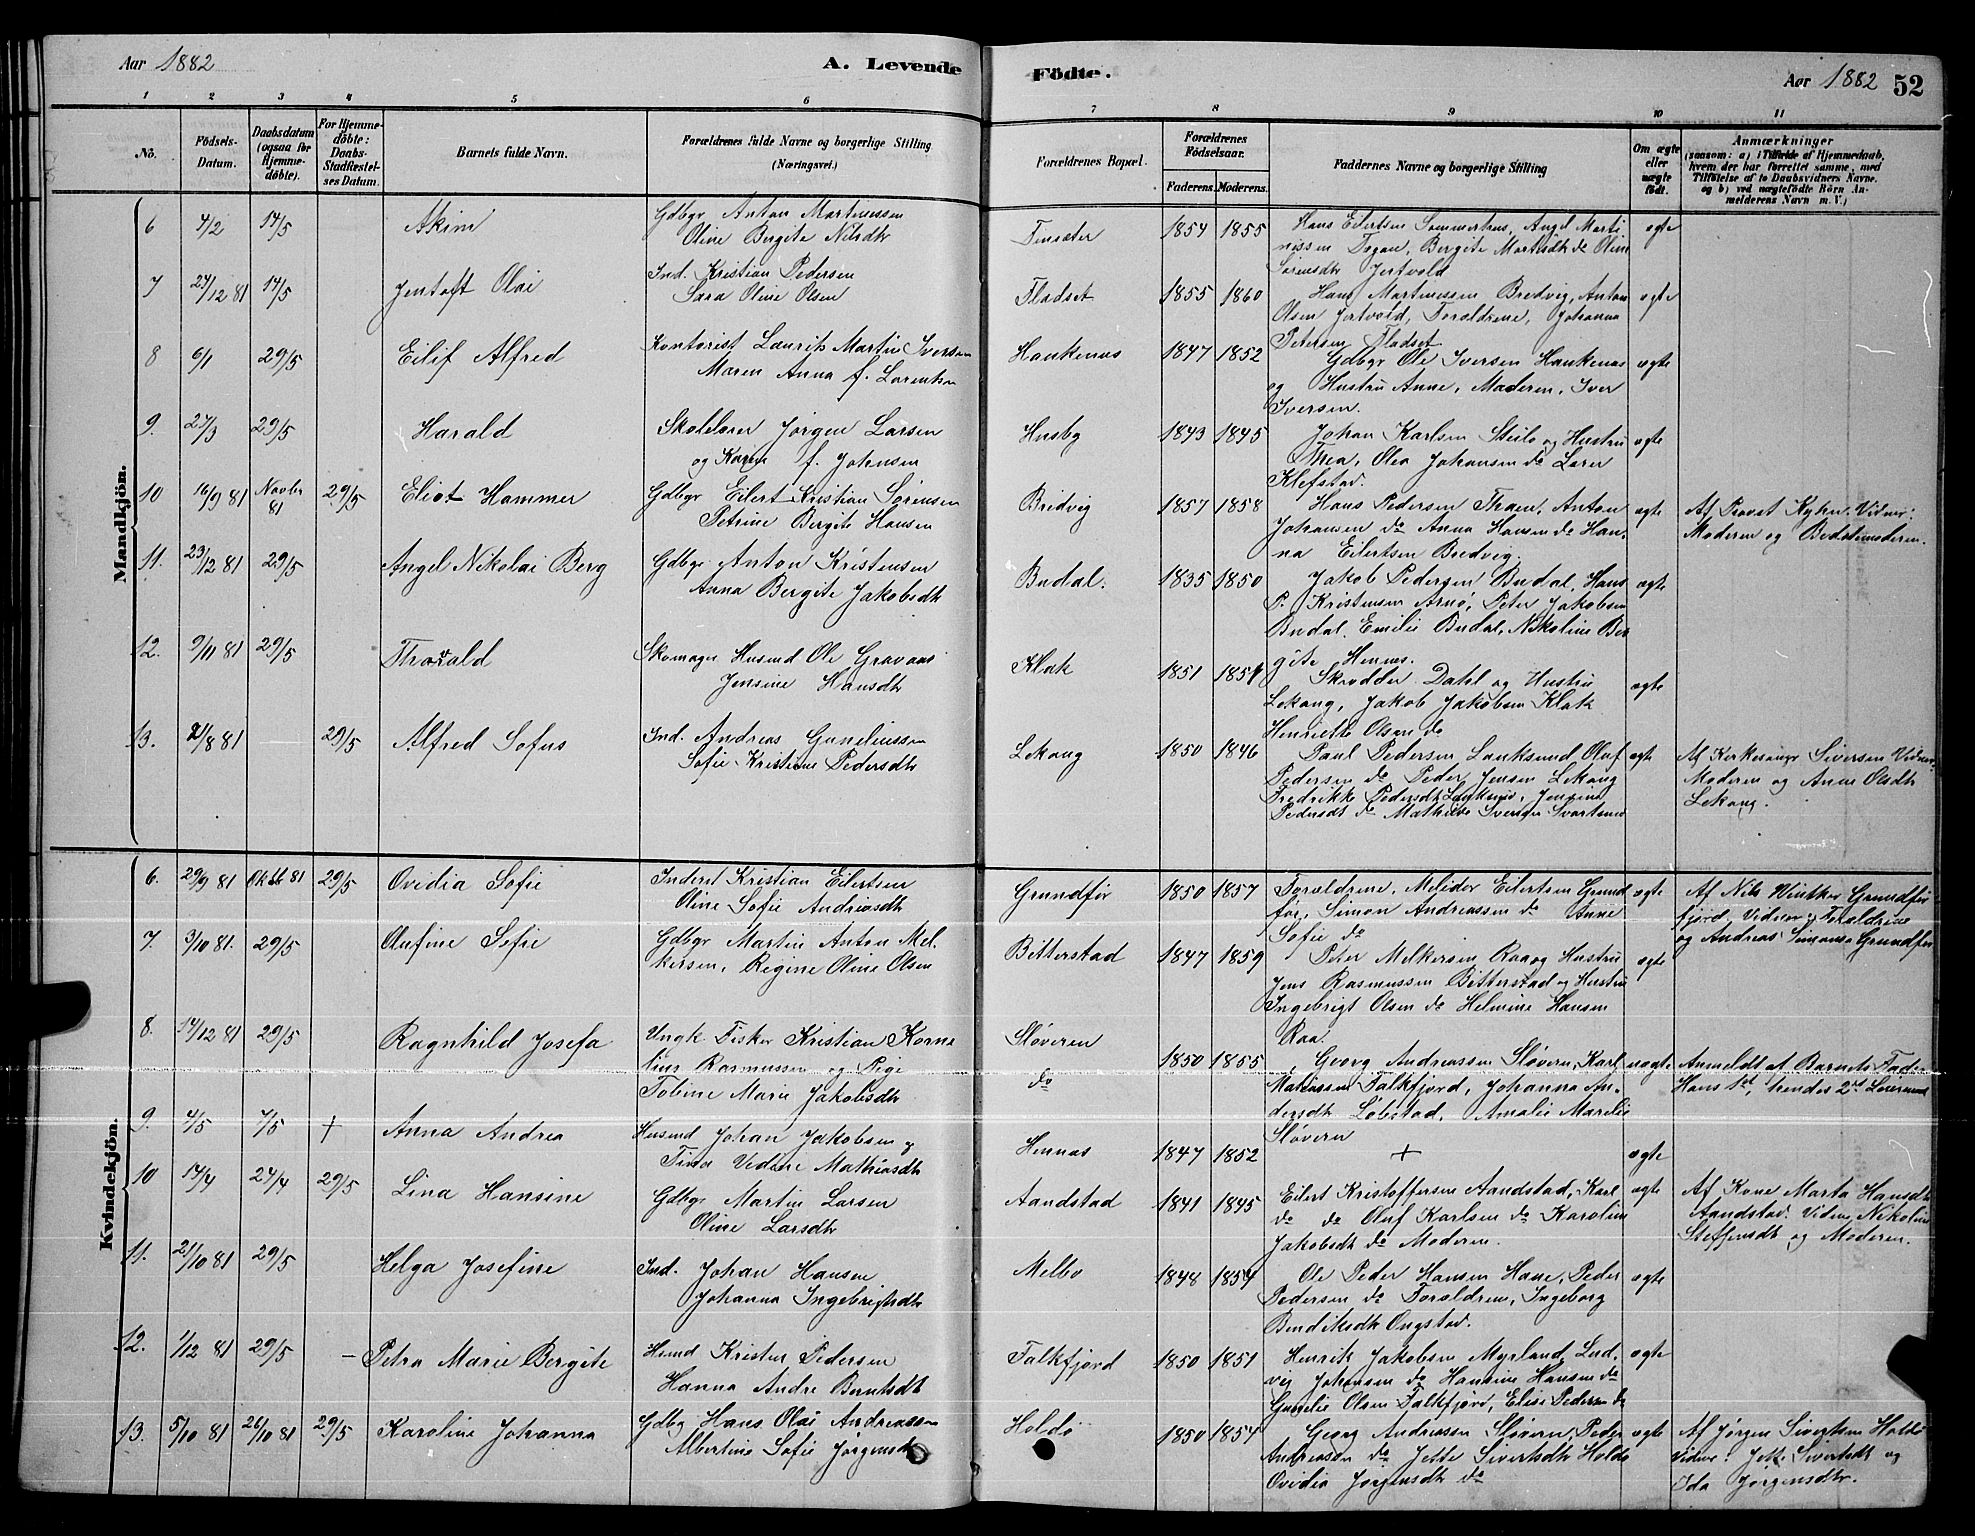 Aar 1882 A. Levende Födte. Aar 1882 52
1 2 3 4 5 6 7 8 9 10 11
No. Födsels-Datum. Daabsdatum (ogsaa for Hjemme-döbte). For Hjemme-döbte: Daabs-Stadfæstel-ses Datum. Barnets fulde Navn. Forældrenes fulde Navne og borgerlige Stilling (Næringsvei). Forældrenes Bopæl. Forældrenes Födselsaar. Faderens. Moderens. Faddernes Navne og borgerlige Stilling Om ægte eller uægte födt. Anmærkninger (saasom: a) i Tilfælde af Hjemmedaab, hvem der har forrettet samme, med Tilföielse af to Daabsvidners Navne, og b) ved uægtefödte Börn An-melderens Navn m. V.)
Mandkjön.
6 4/2 14/5 Akim Gdbgr Anton Martinussen
Oline Bergite Nilsdtr
1854 1855 Hans Eilertsen Sommerhus, Angel Marti
nissen Bergite Martsdtr do Oline
Sörensdtr Jertvold
ægte
7 24/12 81 14/5 Jentoft Olai Ind. Kristian Pedersen
Sara Oline Olsen
Fladset 1855 1860 Hans Martinussen Bredvig, Anton
Olsen Jertvold, Forældrene, Johanna
Petersen Fladset
ægte
8 6/1 29/5 Eilif Alfred Kontorist Laurits Martin Iversen
Maren Anna f. Lorentsen
Haukenæs 1847 1852 Gdbgr Ole Iversen Haukenæs
og Hustru Anne, Moderen, Iver
Iversen.
ægte
9. 27/3 29/5 Harald Skolelærer Jörgen Larsen
og Karen f. Johnsen
Husby 1843 1845 Johan Karlsen Steilo og Hustru
Thea, Olea Johansen do Lærer
Klefstad.
ægte
10 16/9 81 Novbr 81 29/5 Eliot Hammer Gdbgr Eilert Kristian Sörensen
Petrine Bergite Hansen
Bredvig 1857 1858 Hans Pedersen Anton
Johansen do Anna Hansen do Han-
na Eilertsen Bredvig.
ægte Af Provst Kyhn. Vidner:
Moderen og Bedstemoderen.
11. 23/12 81 29/5 Angel Nikolai Berg Gdbgr Anton Kristensen
Anna Bergite Jakobsdtr
Budal. 1835 1850 Jakob Pedersen Budal, Hans
P. Kristensen Arnö, Peter Jakobsen
Budal. Emilie Budal, Nikoline Ber
gite Hennes.
ægte
12. 9/11 81 29/5 Thorvald Skomager Husmd Ole Gravaas
Jensine Hansdtr
Klak 1851 1854 Skrædder Dahl og Hustru
Lekang, Jakob Jakobsen Klak
Henriette Olsen do
ægte
13. 21/8 81 29/5 Alfred Sofus Ind. Andreas Guneliussen
Sofie Kristine Pedersdtr
Lekang 1850 1846 Paul Pedersen Lanksund Oluf
Pedersen do Peder Jensen Lekang
Fredrikke Pedersdtr Lanksund, Jensine
Pedersdtr do Mathilde Svartsund
ægte Af Kirkesanger Siversen Vidner:
Moderen og Anne Olsdtr
Lekang.
Kvindekjön.
6. 29/9 81 Oktbr 81 29/5 Ovidia Sofie Inderst Kristian Eilertsen
Oline Sofie Andreasdtr
Grundför 1850 1857 Forældrene, Melidor Eilertsen Grund
för, Simon Andreassen do Anne
Sofie do
ægte Af Nils Winther Grundför
fjord, Vidner Forældrene
og Andreas Simonsen Grundför
7. 3/10 81. 29/5 Olufine Sofie Gdbgr Martin Anton Mel-
kersen, Regine Oline Olsen
Bitterstad 1847 1859 Peter Melkersen Raa og Hustru
Jens Rasmussen Bitterstad og Hustru
Ingebrigt Olsen do Helmine Hansen
Raa.
ægte
8. 14/12 81 29/5 Ragnhild Josefa Ungk Fisker Kristian Korne
lius Rasmussen og Pige
Tobine Marie Jakobsdtr
Slöveren
do
1850 1855 Georg Andreassen Slöveren, Karl
Falkfjord, Johanna An-
dersdtr Löbstad, Amalie Marelie
Slöveren
uægte Anmeldt af Barnets Fader
Hans 1st, hendes 2d Leiermaal
9. 4/5 7/5 + Anna Andrea Husmd Johan Jakobsen og
Tina Vedine Mathiasdtr
Hennes 1847 1852 + ægte
10 14/4 24/4 29/5 Lina Hansine Gdbgr Martin Larsen
Oline Larsdtr
Aandstad 1841 1845 Eilert Kristoffersen Aandstad, Karl
do do Oluf Karlsen do Karoline
Jakobsdtr do Moderen.
ægte Af Kone Marta Hansdtr
Aandstad. Vidner Nikoline
Steffensdtr og Moderen.
11. 21/10 81 29/5 Helga Josefine Ind. Johan Hansen
Johanna Ingebrigtsdtr
Melbo 1848 1854 Ole Peder Hansen Hane, Peder
Pedersen do Forældrene, Ingeborg
Bendiksdtr Ongstad.
ægte
12. 1/12 81 29/5 – Petra Marie Bergite Husmd Krister Pedersen
Hanna Andre Berntsdtr
Falkfjord 1850 1851 Henrik Jakobsen Myrland, Lud-
vig Johansen do Hansine Hansen do
Gunelie Olsen Falkfjord, Elise Pedersen do
ægte
13. 5/10 81 26/10 81 29/5 Karoline Johanna Gdbg Hans Olai Andreassen
Albertine Sofie Jörgensdtr
Holdö 1850 1854 Georg Andreassen Slöveren, Peder
Andreassen do Jette Sivertsdtr Holdö
Ovidia Jörgensdtr do
ægte Af Jörgen Sivertsen Holdö
Vidner: Jette Sivertsdtr og
Ida Jörgensdtr.